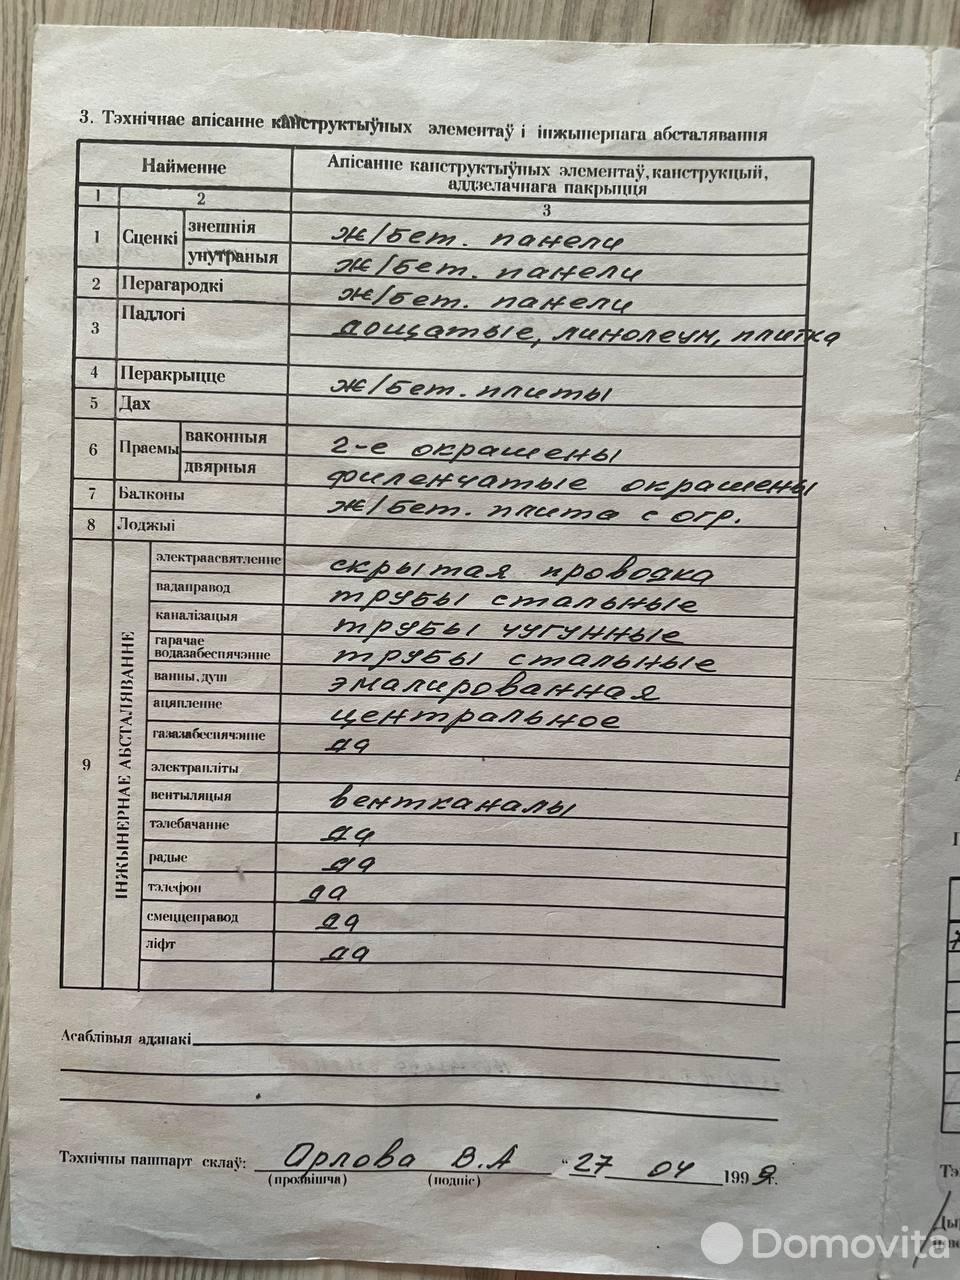 3. Тэхнічнае апісанне канструктыўных элементаў і інжынернага абсталявання
Найменне
Апісанне канструктыўных элементаў, канструкцый,
аддзелачнага пакрыцця
1 2 3
1 Сценкі знешнія ж/бет. панели
унутраныя ж/бет. панели
2 Перагародкі ж/бет. панели
3 Падлогі дощатые, линолеум, плитка
4 Перакрыцце ж/бет. плиты
5 Дах
6 Праемы ваконныя 2-е окрашены
двярныя филенчатые окрашены
7 Балконы ж/бет. плита с огр.
8 Лоджыі
9 ІНЖЫНЕРНАЕ АБСТАЛЯВАННЕ
электраасвятленне скрытая проводка
вадаправод трубы стальные
каналізацыя трубы чугунные
гарачае
водазабеспячэнне трубы стальные
ванны, душ эмалированная
ацяпленне центральное
газазабеспячэнне да
электрапліты
вентыляцыя вентканалы
тэлебачанне да
радые да
тэлефон да
смеццеправод да
ліфт да
Асаблівыя адзнакі
Тэхнічны пашпарт склаў: Орлова В.А " 27 04 1999г.
(прозвішча) (подпіс)
Domovita